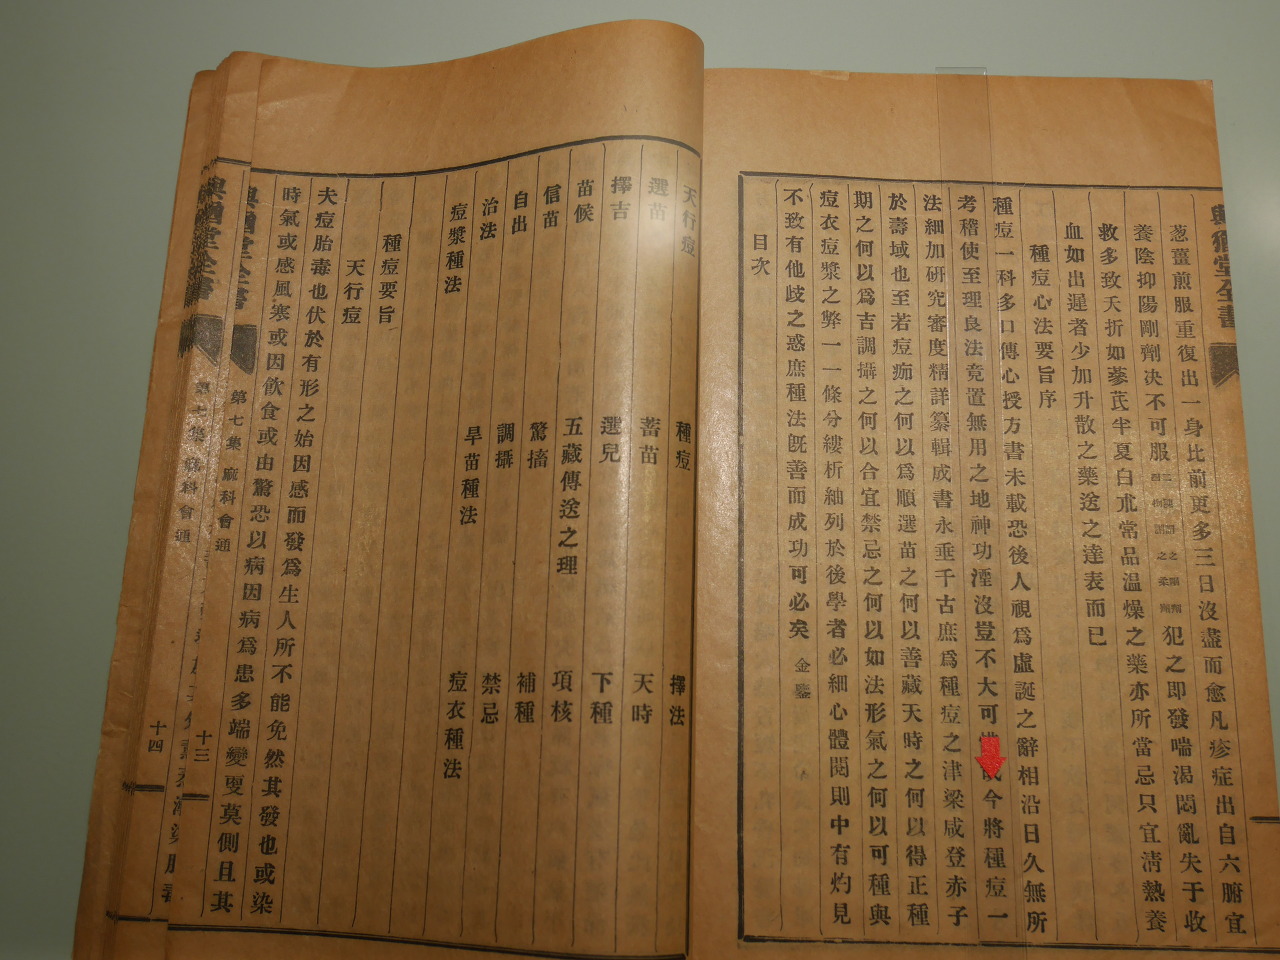 與猶堂全書
葱薑煎服重復出一身比前更多三日沒盡而愈凡疹症出自六腑宜
養陰抑陽剛劑決不可服
犯之即發喘渴悶亂失于收
救多致夭折如蔘芪半夏白朮常品溫燥之藥亦所當忌只宜淸熱養
血如出遲者少加升散之藥送之達表而已
種痘心法要旨序
種痘一科多口傳心授方書未載恐後人視爲虛誕之辭相沿日久無所
考稽使至理良法竟置無用之地神功湮沒豈不大可
今將種痘一
法細加研究審度精詳纂輯成書永垂千古庶爲種痘之津梁咸登赤子
於壽域也至若痘痂之何以爲順選苗之何以善藏天時之何以得正種
期之何以爲吉調攝之何以合宜禁忌之何以如法形氣之何以可種與
痘衣痘漿之弊一一條分縷析紬列於後學者必細心體閱則中有灼見
不致有他歧之惑庶種法旣善而成功可必矣 金鑒
目次
天行痘 種痘 擇法
選苗 蓄苗 天時
擇吉 選兒 下種
苗候 五藏傳送之理 項核
信苗 驚搐 補種
自出 調攝 禁忌
治法 旱苗種法 痘衣種法
痘漿種法
種痘要旨
天行痘
夫痘胎毒也伏於有形之始因感而發爲生人所不能免然其發也或染
時氣或感風寒或因飮食或由驚恐以病因病爲患多端變更莫測且其
與猶堂全書
第七集 麻科會通
十三
與猶堂全書
第七集 麻科會通
十四